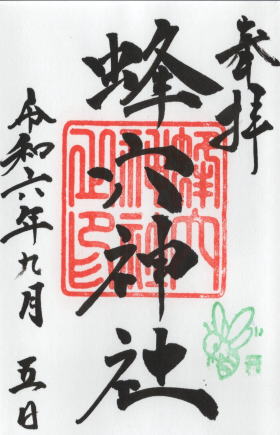 奉拝
蜂穴神社
蜂穴神社之印
令和六年九月五日